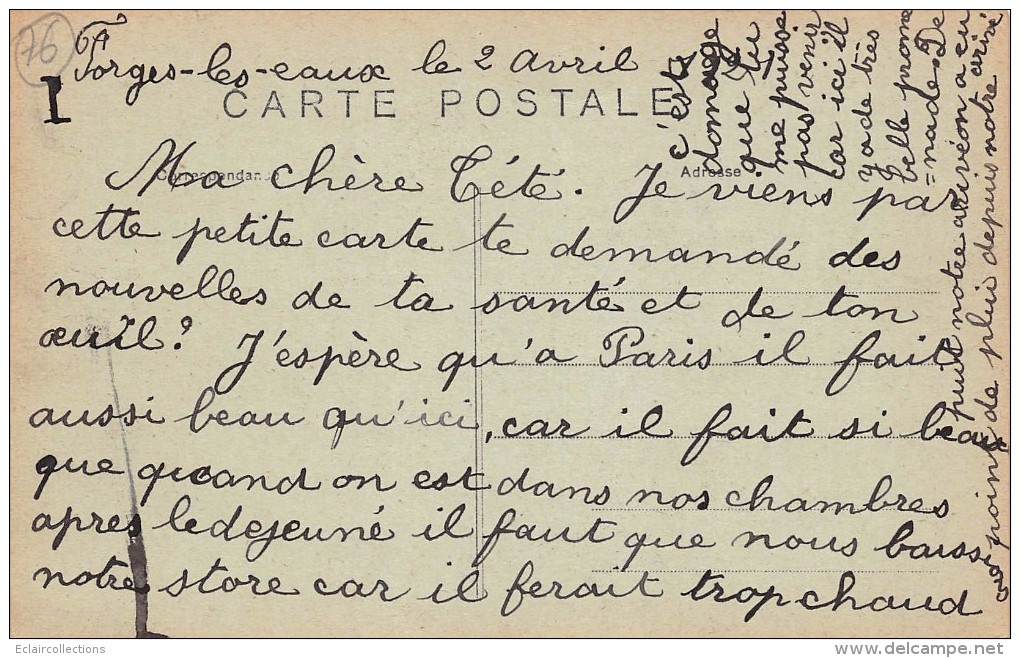 76
Forges-les-eaux le 2 Avril
I
CARTE POSTALE
Correspondance
Adresse
Ma chère Tété. Je viens par
cette petite carte te demandé des
nouvelles de ta santé et de ton
œuil? J'espère qu'a Paris il fait
aussi beau qu'ici, car il fait si beau
que quand on est dans nos chambres
apres le dejeuné il faut que nous baiss
notre store car il ferait trop chaud
c'est
domage
que tu
me puisse
pas venir
car ici il
ya de très
belle prome
=nades. De
puit notre arivéon a eu
point de pluie depuis notre arivé
Eclaircollections
delcampe.net